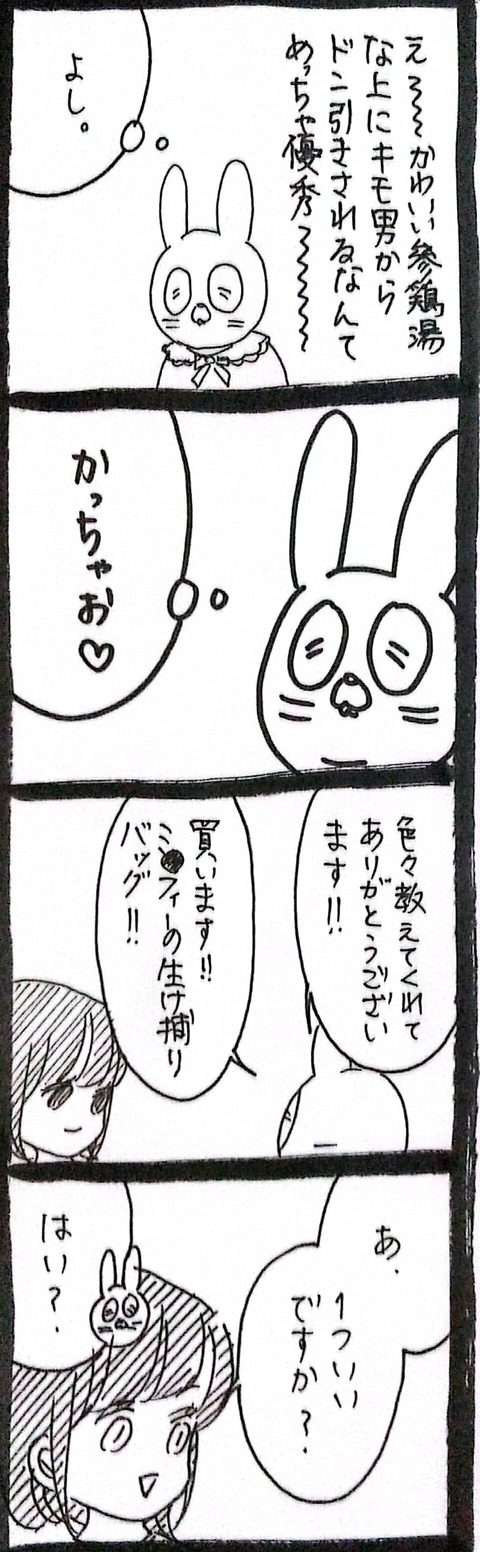 え〜〜かわいい参鶏湯
な上にキモ男から
ドン引きされるなんて
めっちゃ優秀〜〜〜
よし。
かっちゃお♡
色々教えてくれて
ありがとうござい
ます!!
買います!!
ミ●フィーの生け捕り
バッグ!!
あ、
1ついい
ですか?
はい?